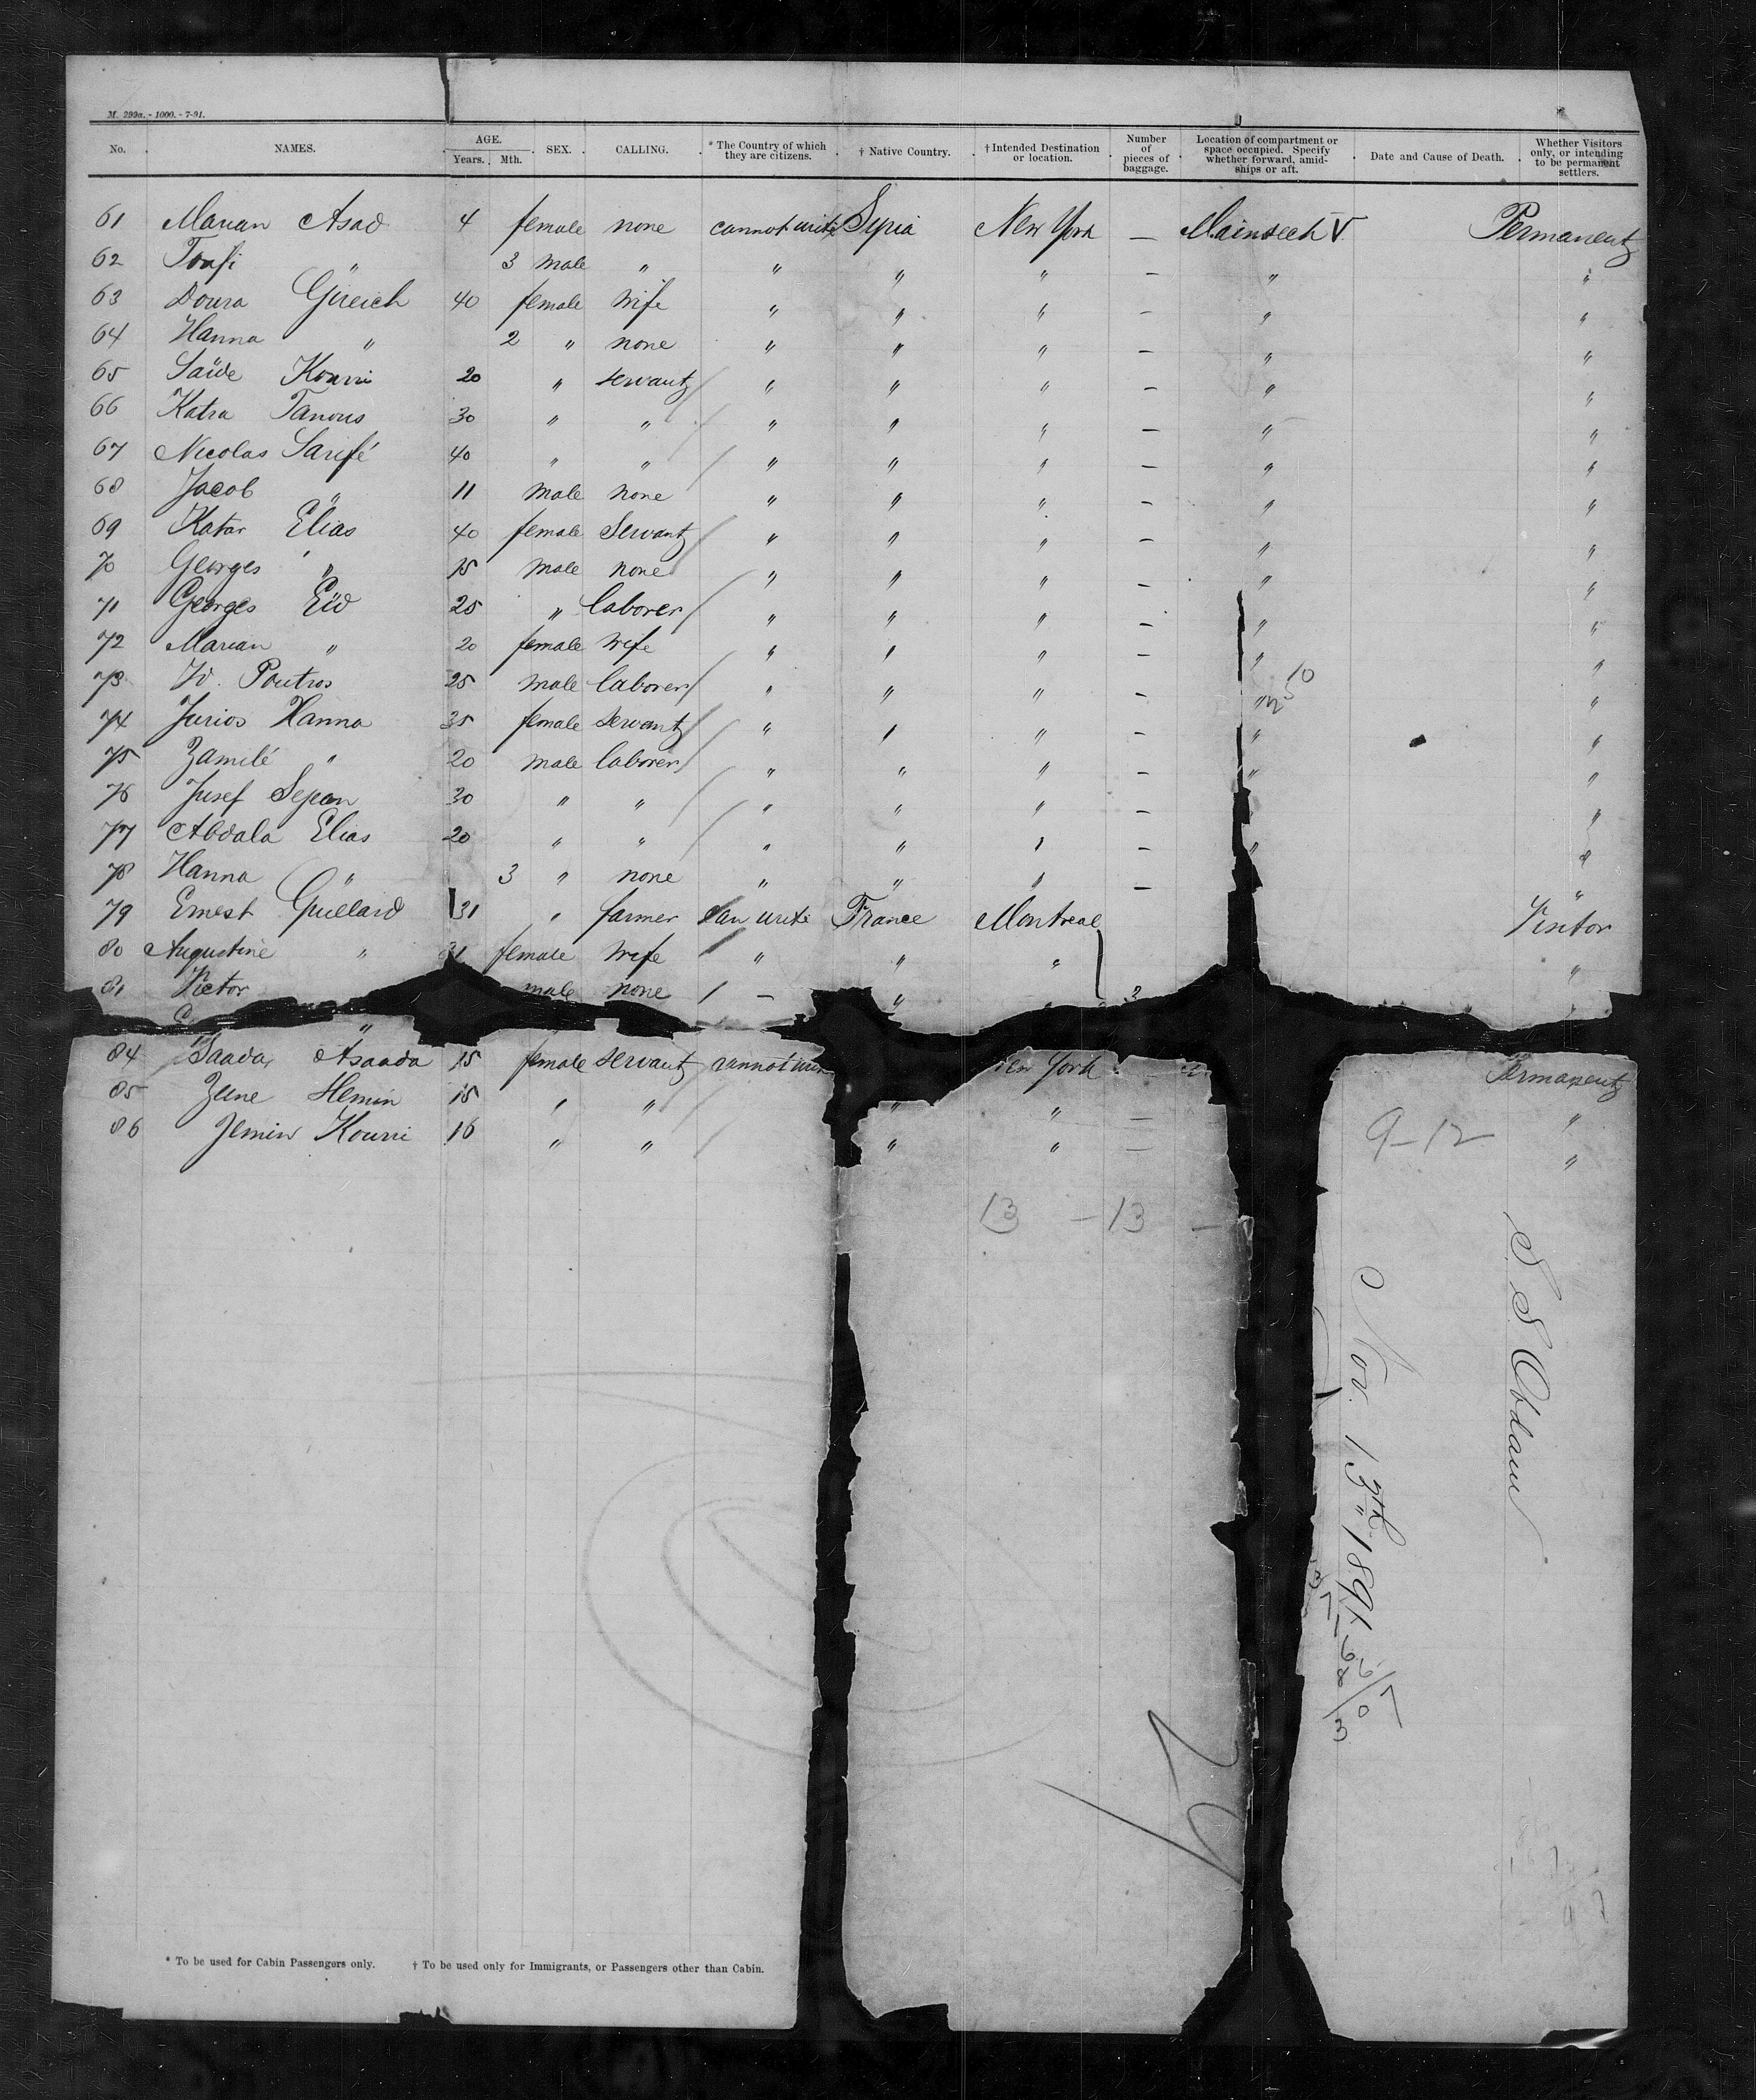 M. 299a. - 1000. - 7-91.
No. NAMES. AGE. Years. Mth. SEX. CALLING. * The Country of which they are citizens. † Native Country. † Intended Destination or location. Number of pieces of baggage. Location of compartment or space occupied. Specify whether forward, amidships or aft. Date and Cause of Death. Whether Visitors only, or intending to be permanent settlers.
61 Marian Asad 4 female none cannot write Syria New York — Maindeck V Permanent
62 Toufi " 3 male " " " " — " "
63 Doura Gireich 40 female wife " " " — " "
64 Hanna " 2 " none " " " — " "
65 Saïde Kourri 20 " servant " " " — " "
66 Katra Tanous 30 " " " " " — " "
67 Nicolas Sarifé 40 " " " " " — " "
68 Jacob " 11 male none " " " — " "
69 Katar Elias 40 female Servant " " " — " "
70 Georges " 15 male none " " " — " "
71 Georges Eid 25 " laborer " " " — " "
72 Marian " 20 female wife " " " — " "
73 Poutros 25 male laborer " " " — " "
74 Jurios Hanna 35 female servant " " " — " "
75 Zamilé " 20 male laborer " " " — " "
76 Jusef Sepan 30 " " " " " — "
77 Abdala Elias 20 " " " " " — " "
78 Hanna " 3 " none " " " — "
79 Ernest Guellard 31 " farmer Can write France Montreal Visitor
80 Augustine " female wife " " " "
81 Victor male none — "
84 Saada Asaada 15 female servant cannot New York — Permanent
85 Zene Hemin 15 " " " " — "
86 Jemin Kourri 16 " " " " — "
9-12
13 — 13 —
S. S. Obdam
Nov. 13th 1891
* To be used for Cabin Passengers only. † To be used only for Immigrants, or Passengers other than Cabin.